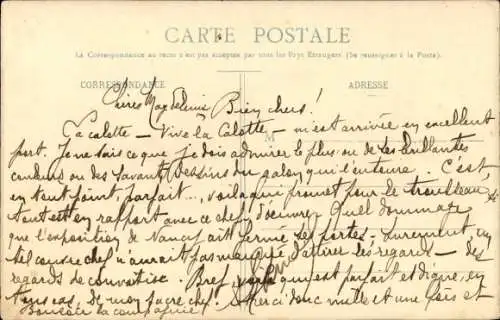 CARTE POSTALE
La Correspondance au recto n'est pas acceptée par tous les Pays Étrangers (Se renseigner à la Poste).
CORRESPONDANCE
ADRESSE
M
Bien chers!
La calotte – Vive la Calotte – m'est arrivée en excellent
port. Je ne sais ce que je dois admirer le plus ou de les brillantes
couleurs ou des savants dessins du galon qui l'entoure. C'est,
en tout point, parfait..., voilà qui promet pour le trousseau si
tout est en rapport avec ce chef d'œuvre. Quel dommage
que l'exposition de Nancy ait fermé ses portes. Sûrement, un
tel couvre chef n'aurait pas manqué d'attirer les regards – des
regards de convoitise. Bref, voilà qui est parfait et digne, en
tous cas, de mon sacré chef. Merci donc mille et une fois et
Bonsoir la compagnie